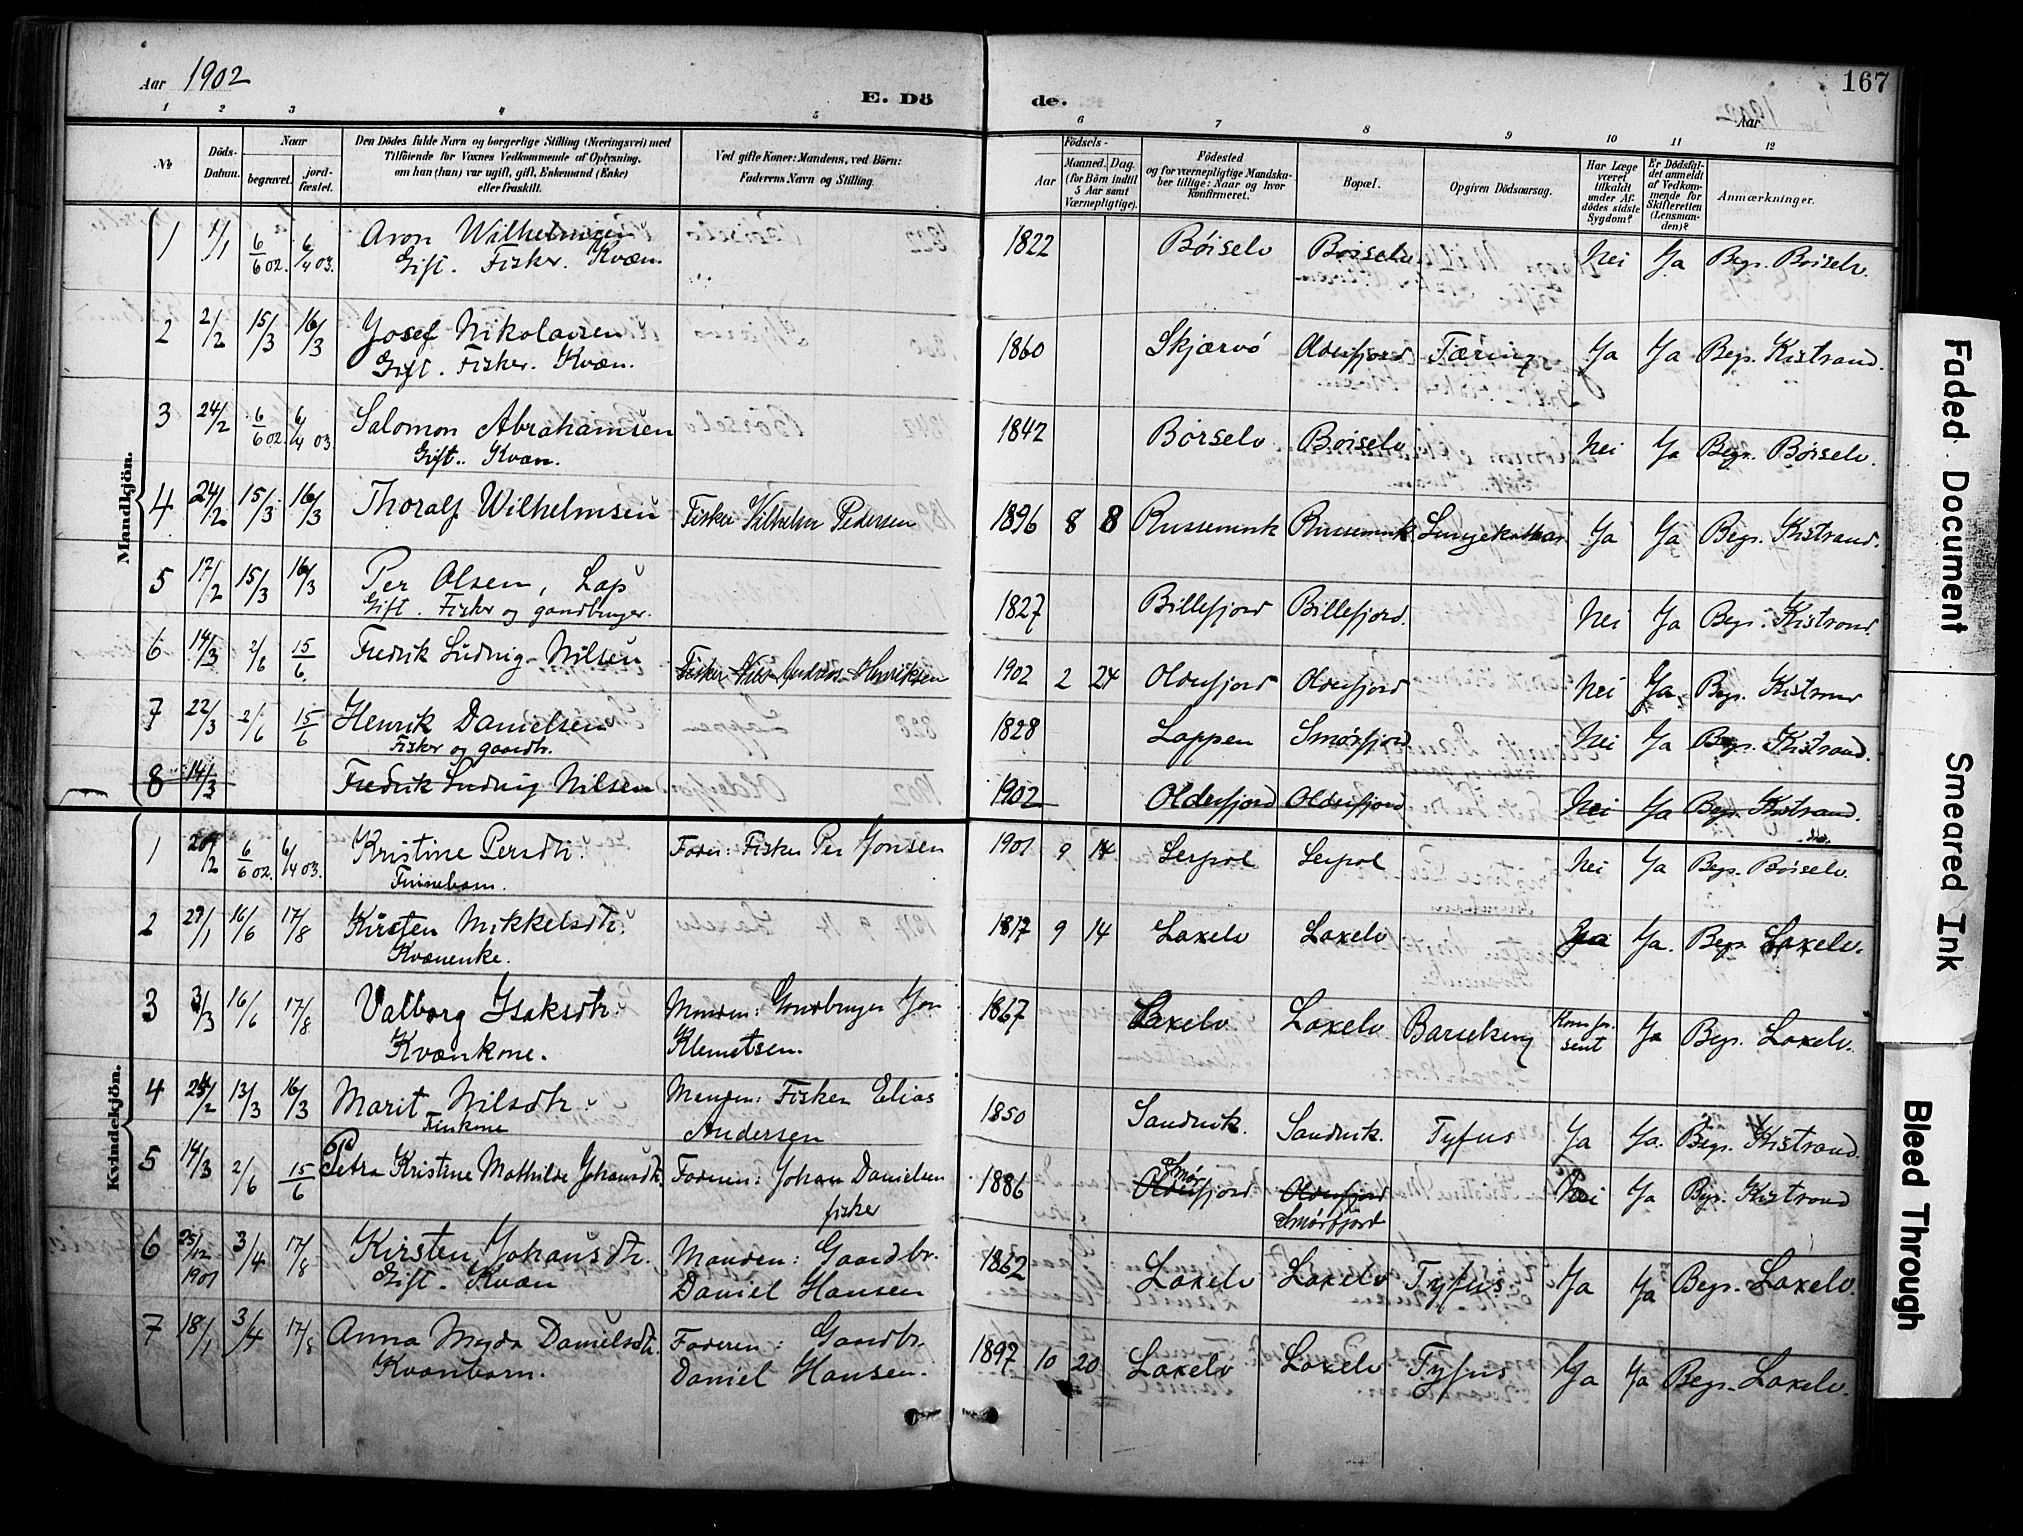 Aar 1902
E. Dö
de.
Aar
167
1 2 3 4 5 6 7 8 9 10 11 12
№
Döds-Datum.
Naar
begravet.
jord-fæstet.
Den Dödes fulde Navn og borgerlige Stilling (Næringsvei) med
Tilföiende for Voxnes Vedkommende af Oplysning,
om han (han) var ugift, gift, Enkemand (Enke)
eller fraskilt.
Ved gifte Koner: Mandens, ved Börn:
Faderens Navn og Stilling.
Födsels-
Aar
Maaned. Dag.
(for Börn indtil
5 Aar samt
Værnepligtige).
Födested
og for værnepligtige Mandska-
ber tillige: Naar og hvor
Konfirmeret.
Bopæl.
Opgiven Dödsaarsag.
Har Læge
været
tilkaldt
under Af-
dödes sidste
Sygdom?
Er Dödsfal-
det anmeldt
af Vedkom-
mende for
Skifteretten
(Lensman-
den)?
Anmærkninger.
Mandkjön.
1 1/1 6/6 02. 6/4 03. Aron Wilhelmsen 1822 Börselv Börselv Nei Ja Begr. Börselv.
Gift. Fisker. Kvæn.
2 2/2 15/3 16/3 Josef Nikolaisen 1860 Skjærvö Olderfjord Tæring Ja Ja Begr. Kistrand.
Gift. Fisker. Kvæn.
3 24/2 6/6 02. 6/4 03. Salomon Abrahamsen 1842 Börselv Börselv Nei Ja Begr. Börselv.
Gift. Kvæn.
4 24/2 15/3 16/3 Thoralf Wilhelmsen Fisker Vilhelm Pedersen 1896 8 8 Russemark Russemark Lungekathar Ja Ja Begr. Kistrand.
5 17/2 15/3 16/3 Per Olsen, Lap 1827 Billefjord Billefjord. Nei Ja Begr. Kistrand.
Gift. Fisker og gaardbruger.
6 14/3 2/6 15/6 Fredrik Ludvig Nilsen Fisker Nils Andreas Henriksen 1902 2 24 Olderfjord Olderfjord Nei Ja Begr. Kistrand
7 22/3 2/6 15/6 Henrik Danielsen 1828 Lappen Smörfjord Nei Ja Begr. Kistrand.
Fisker og gaardb.
8 14/3 Fredrik Ludvig Nilsen 1902 Olderfjord Olderfjord Nei Ja Begr. Kistrand.
Kvindekjön.
1 20/2 6/6 02. 6/4 03. Kristine Persdtr. Fader: Fisker Per Jonsen 1901 9 14 Leirpol Leirpol Nei Ja Begr. Börselv.
Finnebarn.
2 29/1 16/6 17/8 Kirsten Mikkelsdtr. 1817 9 14 Laxelv Laxelv Ja. Begr. Laxelv.
Kvænenke.
3 3/3 16/6 17/8 Valborg Isaksdtr. Manden: Gaardbruger Jon 1867 Laxelv Laxelv Barselseng Ja Begr. Laxelv.
Kvænkone. Klemetsen.
4 13/3 16/3 Marit Nilsdtr. Manden: Fisker Elias 1850 Sandvik. Sandvik. Tyfus Ja Ja. Begr. Kistrand.
Finkone Andersen
5 14/3 2/6 15/6 Petra Kristine Mathilde Johansdtr. Faderen: Johan Danielsen 1886 Smör Olderfjord Olderfjord Nei Ja Begr. Kistrand
fisker Smörfjord
6 25/12 1901 3/4 17/8 Kirsten Johansdtr. Manden: Gaardbr. 1862 Laxelv Laxelv Tyfus Ja Ja Begr. Laxelv.
Gift. Kvæn Daniel Hansen
7 18/1 3/4 17/8 Anna Magda Danielsdtr. Faderen: Gaardbr. 1897 10 20 Laxelv Laxelv Tyfus Ja Ja Begr. Laxelv.
Kvænbarn. Daniel Hansen.
Faded Document
Smeared Ink
Bleed Through